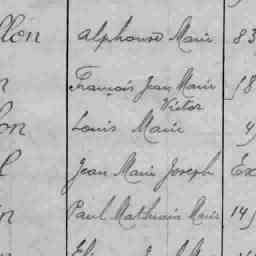 llon Alphonse Marie 83
n François Jean Marie 18
Victor
lon Louis Marie 4
l Jean Marie Joseph Ex
in Paul Mathurin Marie 145